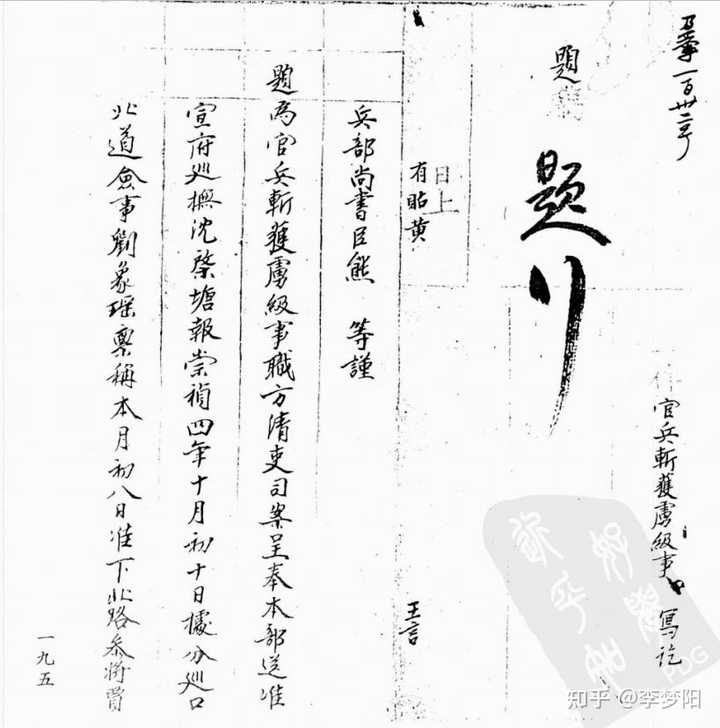 官兵斬獲虜級事 寫訖
題
題行
日上
有貼黃
王言
兵部尚書臣熊 等謹
題為官兵斬獲虜級事職方清吏司案呈奉本部送准
宣府巡撫沈棨塘報崇禎四年十月初十日據分巡口
北道僉事劉象瑶稟稱本月初八日准下北路參將賈
一九五
知乎 @李梦阳
PDG